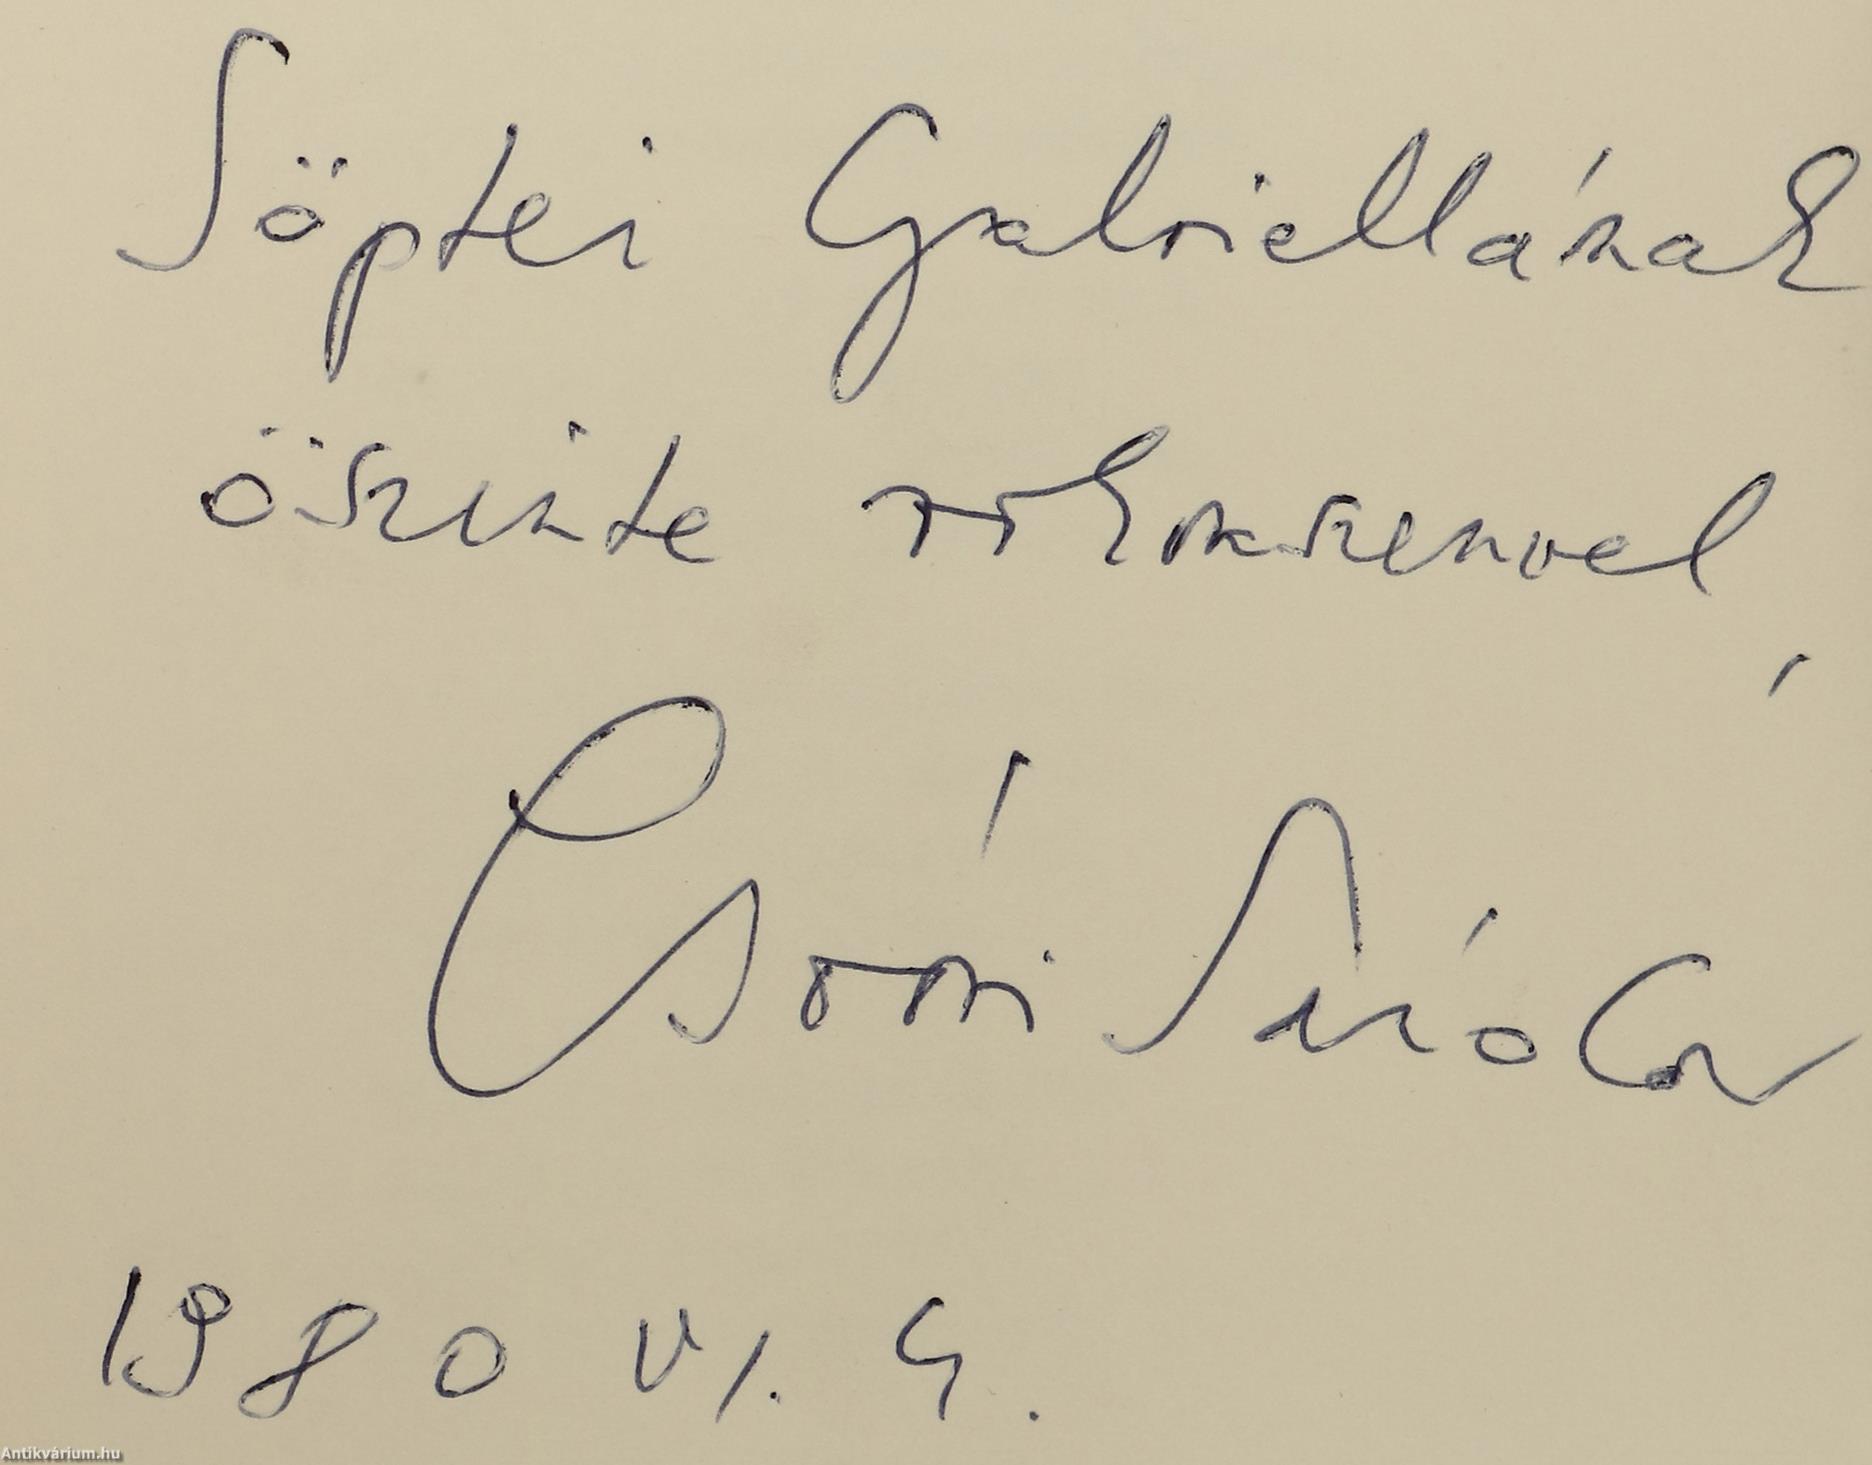 Söptei Gabriellának
őszinte rokonszenvvel,
Csoóri Sándor
1980 VI. 4.
Antikvárium.hu